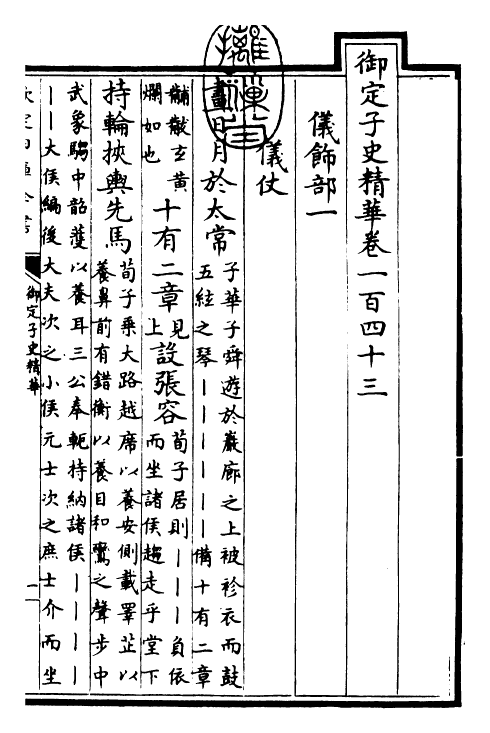 御定子史精華卷一百四十三
儀飾部一
儀仗
畫日月於太常
子華子舜遊於巖廊之上被袗衣而鼓
五絃之琴丨丨丨丨丨丨備十有二章
黼黻玄黃
爛如也
十有二章
見
上
設張容
荀子居則丨丨丨負依
而坐諸侯趨走乎堂下
持輪挾輿先馬
荀子乘大路越席以養安側載睪芷以
養鼻前有錯衡以養目和鸞之聲步中
武象騶中韶護以養耳三公奉軛持納諸侯丨丨丨丨
丨丨大侯編後大夫次之小侯元士次之庶士介而坐
欽定四庫全書
御定子史精華
一